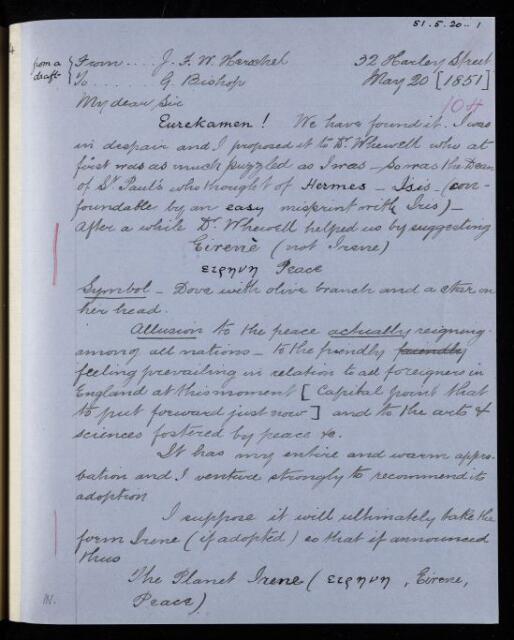 51.5.20..1
from a draft } From .... J. F. W. Herschel 32 Harley Street
To ..... G Bishop May 20 [1851]
104
My dear Sir
Eurekamen! We have found it. I was
in despair and I proposed it to Dr. Whewell who at
first was as much puzzled as I was – So was the Dean
of St Paul's who thought of Hermes – Isis – (con-
foundable by an easy misprint with Iris) –
After a while Dr. Whewell helped us by suggesting
Eirenè (not Irene)
ειρηνη Peace
Symbol – Dove with olive branch and a star on
her head.
Allusion to the peace actually reigning
among all nations – to the friendly friendly
feeling prevailing in relation to all foreigners in
England at this moment [Capital point that
to put forward just now] and to the arts &
sciences fostered by peace &c.
It has my entire and warm appro-
bation and I venture strongly to recommend its
adoption
I suppose it will ultimately take the
form Irene (if adopted) so that if announced
thus
The Planet Irene (ειρηνη, Eirene,
Peace)